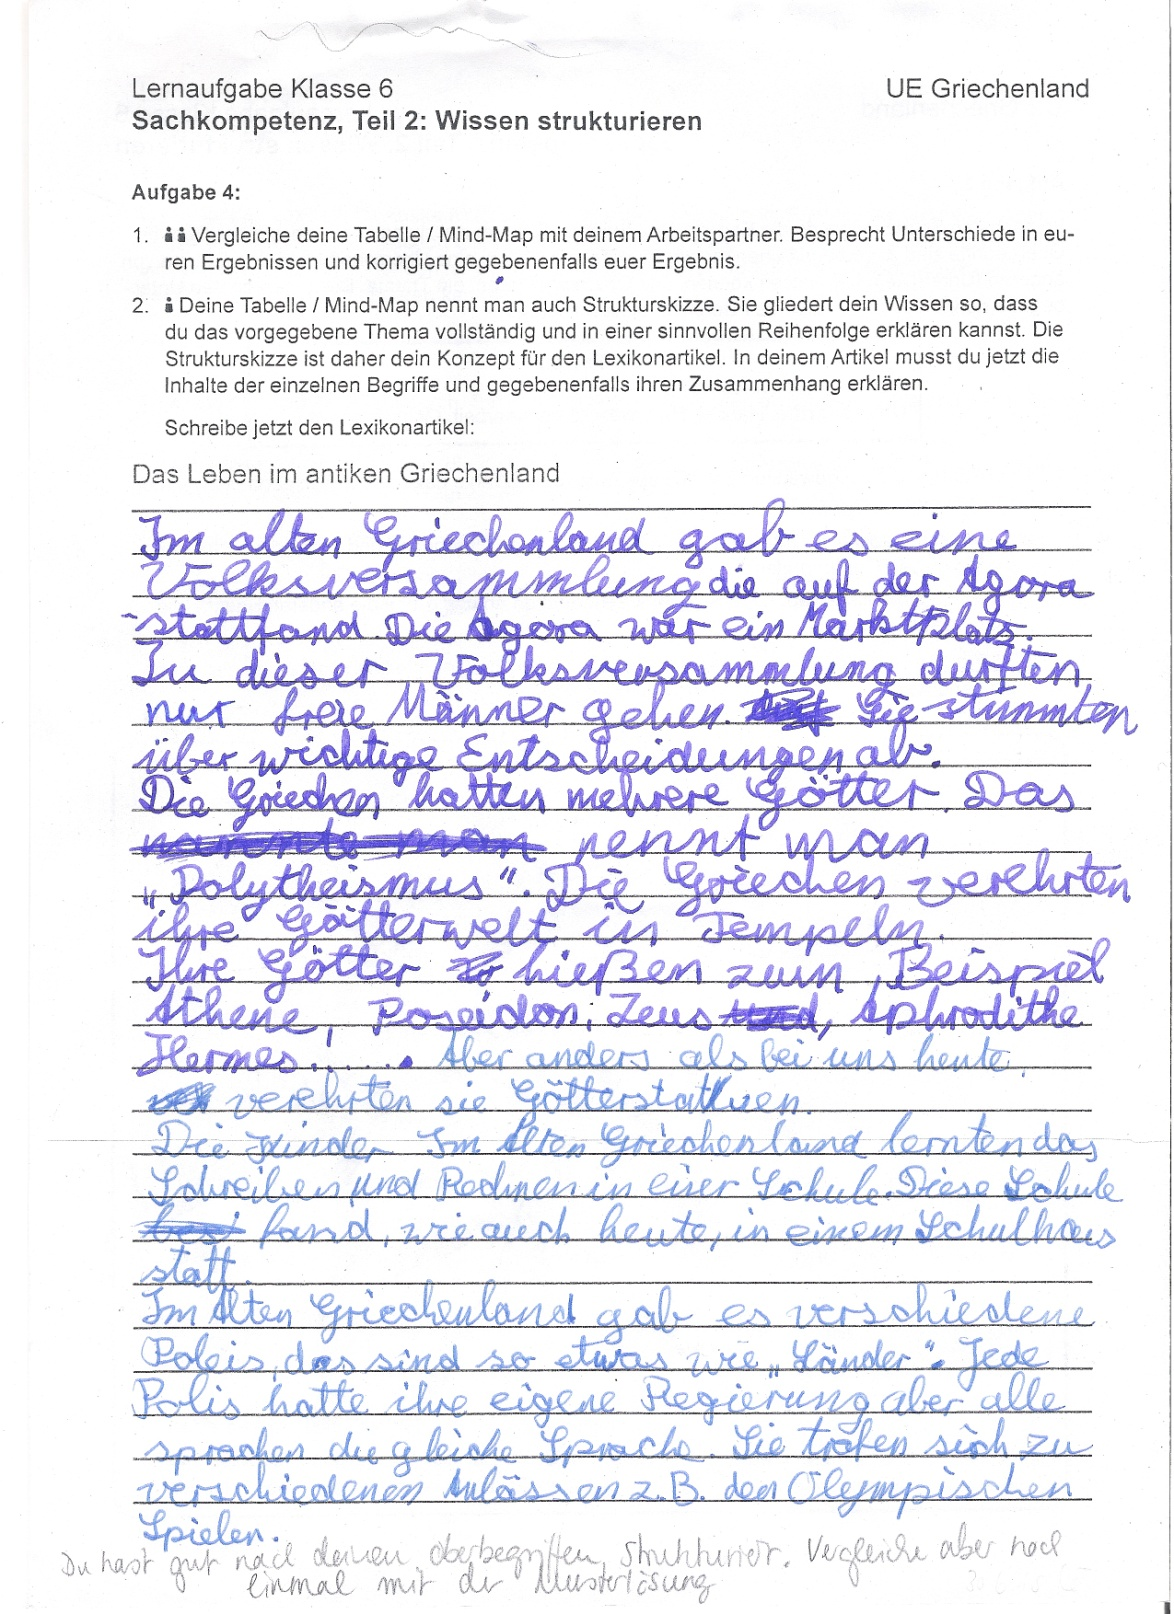 Lernaufgabe Klasse 6 UE Griechenland
Sachkompetenz, Teil 2: Wissen strukturieren
Aufgabe 4:
1. Vergleiche deine Tabelle / Mind-Map mit deinem Arbeitspartner. Besprecht Unterschiede in eu-
ren Ergebnissen und korrigiert gegebenenfalls euer Ergebnis.
2. Deine Tabelle / Mind-Map nennt man auch Strukturskizze. Sie gliedert dein Wissen so, dass
du das vorgegebene Thema vollständig und in einer sinnvollen Reihenfolge erklären kannst. Die
Strukturskizze ist daher dein Konzept für den Lexikonartikel. In deinem Artikel musst du jetzt die
Inhalte der einzelnen Begriffe und gegebenenfalls ihren Zusammenhang erklären.
Schreibe jetzt den Lexikonartikel:
Das Leben im antiken Griechenland
Im alten Griechenland gab es eine
Volksversammlung die auf der Agora
stattfand. Die Agora war ein Marktplats.
Zu dieser Volksversammlung durften
nur freie Männer gehen. Sie stimmten
über wichtige Entscheidungen ab.
Die Griechen hatten mehrere Götter. Das
nannte man nennt man
„Polytheismus“. Die Griechen verehrten
ihre Götterwelt in Tempeln.
Ihre Götter hießen zum Beispiel
Athene, Poseidon, Zeus und, Aphrodithe
Hermes...... Aber anders als bei uns heute
verehrten sie Götterstatuen.
Die Kinder Im Alten Griechenland lernten das
Schreiben und Rechnen in einer Schule. Diese Schule
fand, wie auch heute, in einem Schulhaus
statt.
Im Alten Griechenland gab es verschiedene
Poleis, das sind so etwas wie „Länder“. Jede
Polis hatte ihre eigene Regierung aber alle
sprachen die gleiche Sprache. Sie trafen sich zu
verschiedenen Anlässen z.B. den Olympischen
Spielen.
Du hast gut nach deinen Oberbegriffen strukturiert. Vergleiche aber noch
einmal mit der Musterlösung